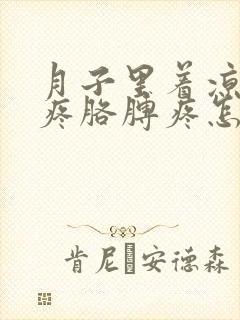 月子里着凉
疼胳膊疼怎
肯尼·安德森